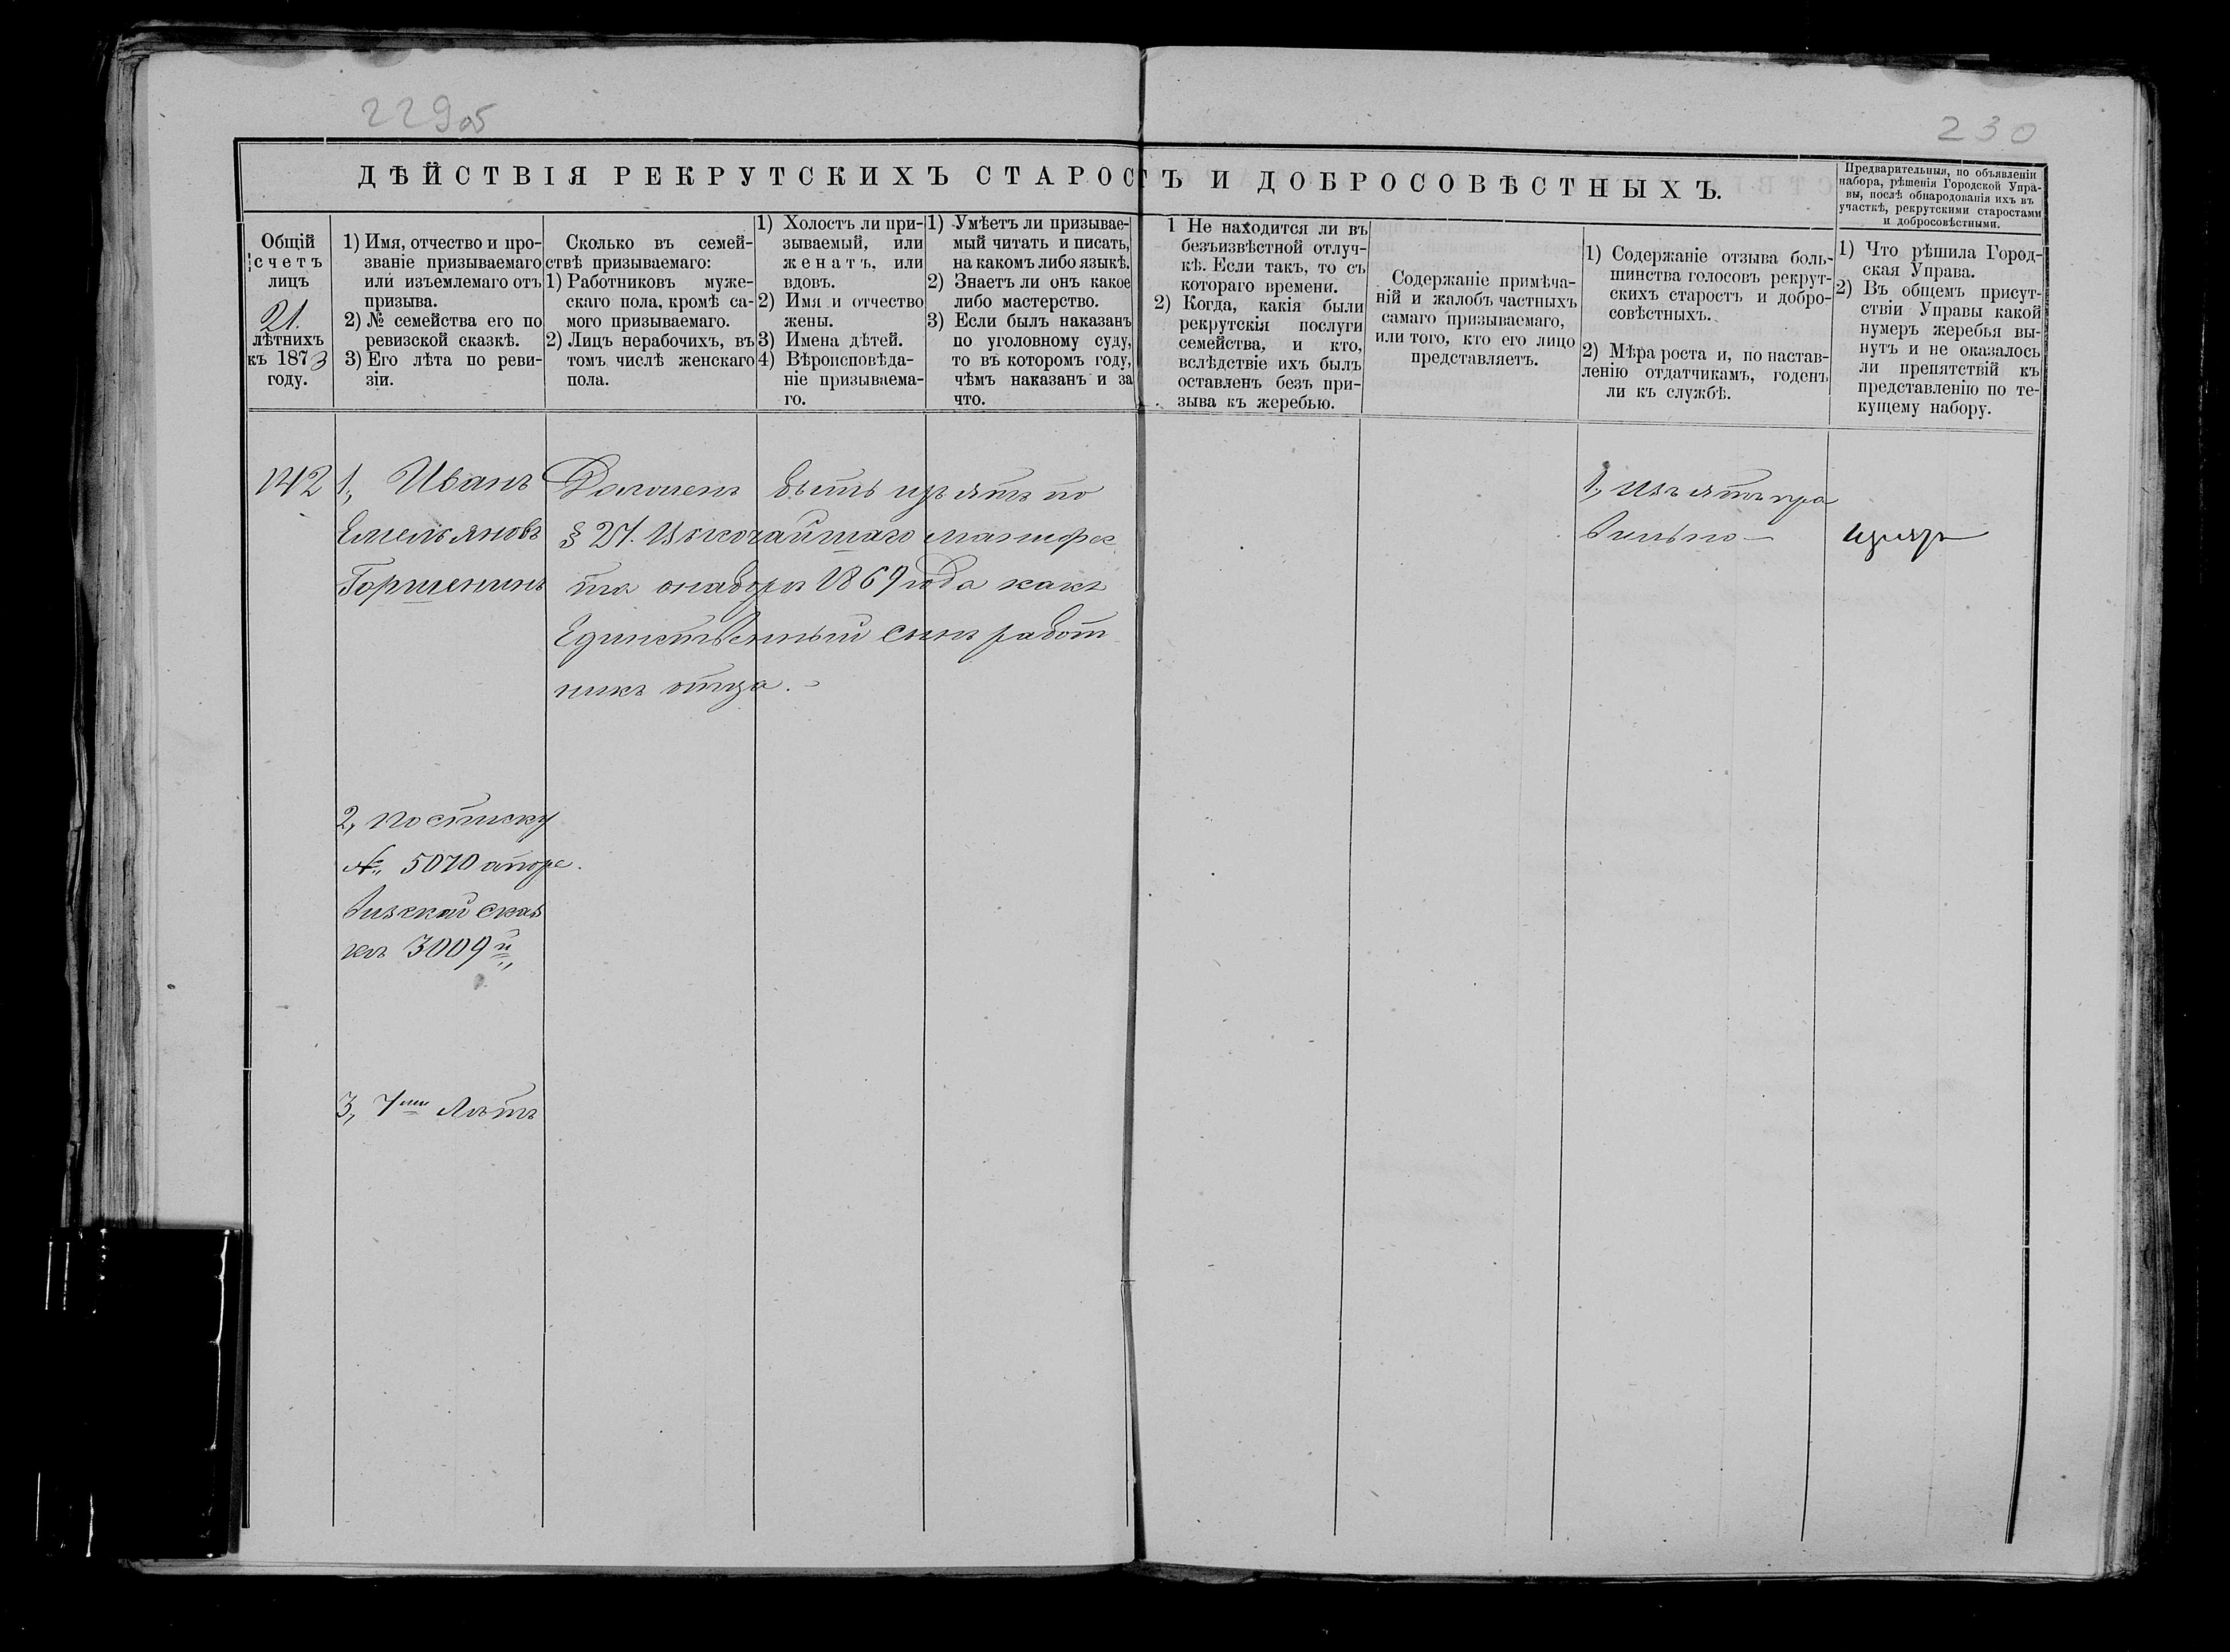 229об
230
ДѢЙСТВІЯ РЕКРУТСКИХЪ СТАРОСТЪ И ДОБРОСОВѢСТНЫХЪ.
Предварительныя, по объявленіи
набора, рѣшенія Городской Упра-
вы, послѣ обнародованія ихъ въ
участкѣ, рекрутскими старостами
и добросовѣстными.
Общій
счетъ
лицъ
21.
лѣтнихъ
къ 1873
году.
1) Имя, отчество и про-
званіе призываемаго
или изъемлемаго отъ
призыва.
2) № семейства его по
ревизской сказкѣ.
3) Его лѣта по реви-
зіи.
Сколько въ семей-
ствѣ призываемаго:
1) Работниковъ муже-
скаго пола, кромѣ са-
мого призываемаго.
2) Лицъ нерабочихъ, въ
томъ числѣ женскаго
пола.
1) Холостъ ли при-
зываемый, или
женатъ, или
вдовъ.
2) Имя и отчество
жены.
3) Имена дѣтей.
4) Вѣроисповѣда-
ніе призываема-
го.
1) Умѣетъ ли призывае-
мый читать и писать,
на какомъ либо языкѣ.
2) Знаетъ ли онъ какое
либо мастерство.
3) Если былъ наказанъ
по уголовному суду,
то въ которомъ году,
чѣмъ наказанъ и за
что.
1 Не находится ли въ
безъизвѣстной отлуч-
кѣ. Если такъ, то съ
котораго времени.
2) Когда, какія были
рекрутскія послуги
семейства, и кто,
вслѣдствіе ихъ былъ
оставленъ безъ при-
зыва къ жеребью.
Содержаніе примѣча-
ній и жалобъ частныхъ
самаго призываемаго,
или того, кто его лицо
представляетъ.
1) Содержаніе отзыва боль-
шинства голосовъ рекрут-
скихъ старостъ и добро-
совѣстныхъ.
2) Мѣра роста и, по настав-
ленію отдатчикамъ, годенъ
ли къ службѣ.
1) Что рѣшила Город-
ская Управа.
2) Въ общемъ присут-
ствіи Управы какой
нумеръ жеребья вы-
нутъ и не оказалось
ли препятствій къ
представленію по те-
кущему набору.
142
1, Иванъ
Емельяновъ
Горшенинъ
2, по списку
№ 5070 а по ре
визской сказ
кѣ 3009й
3, 7ми Лѣтъ
Долженъ быть изъятъ по
§ 27. Высочайшаго манифес
та о наборѣ 1869 года какъ
Единственный сынъ работ
никъ отца.
1, Изъятъ пра
вильно
изъятъ